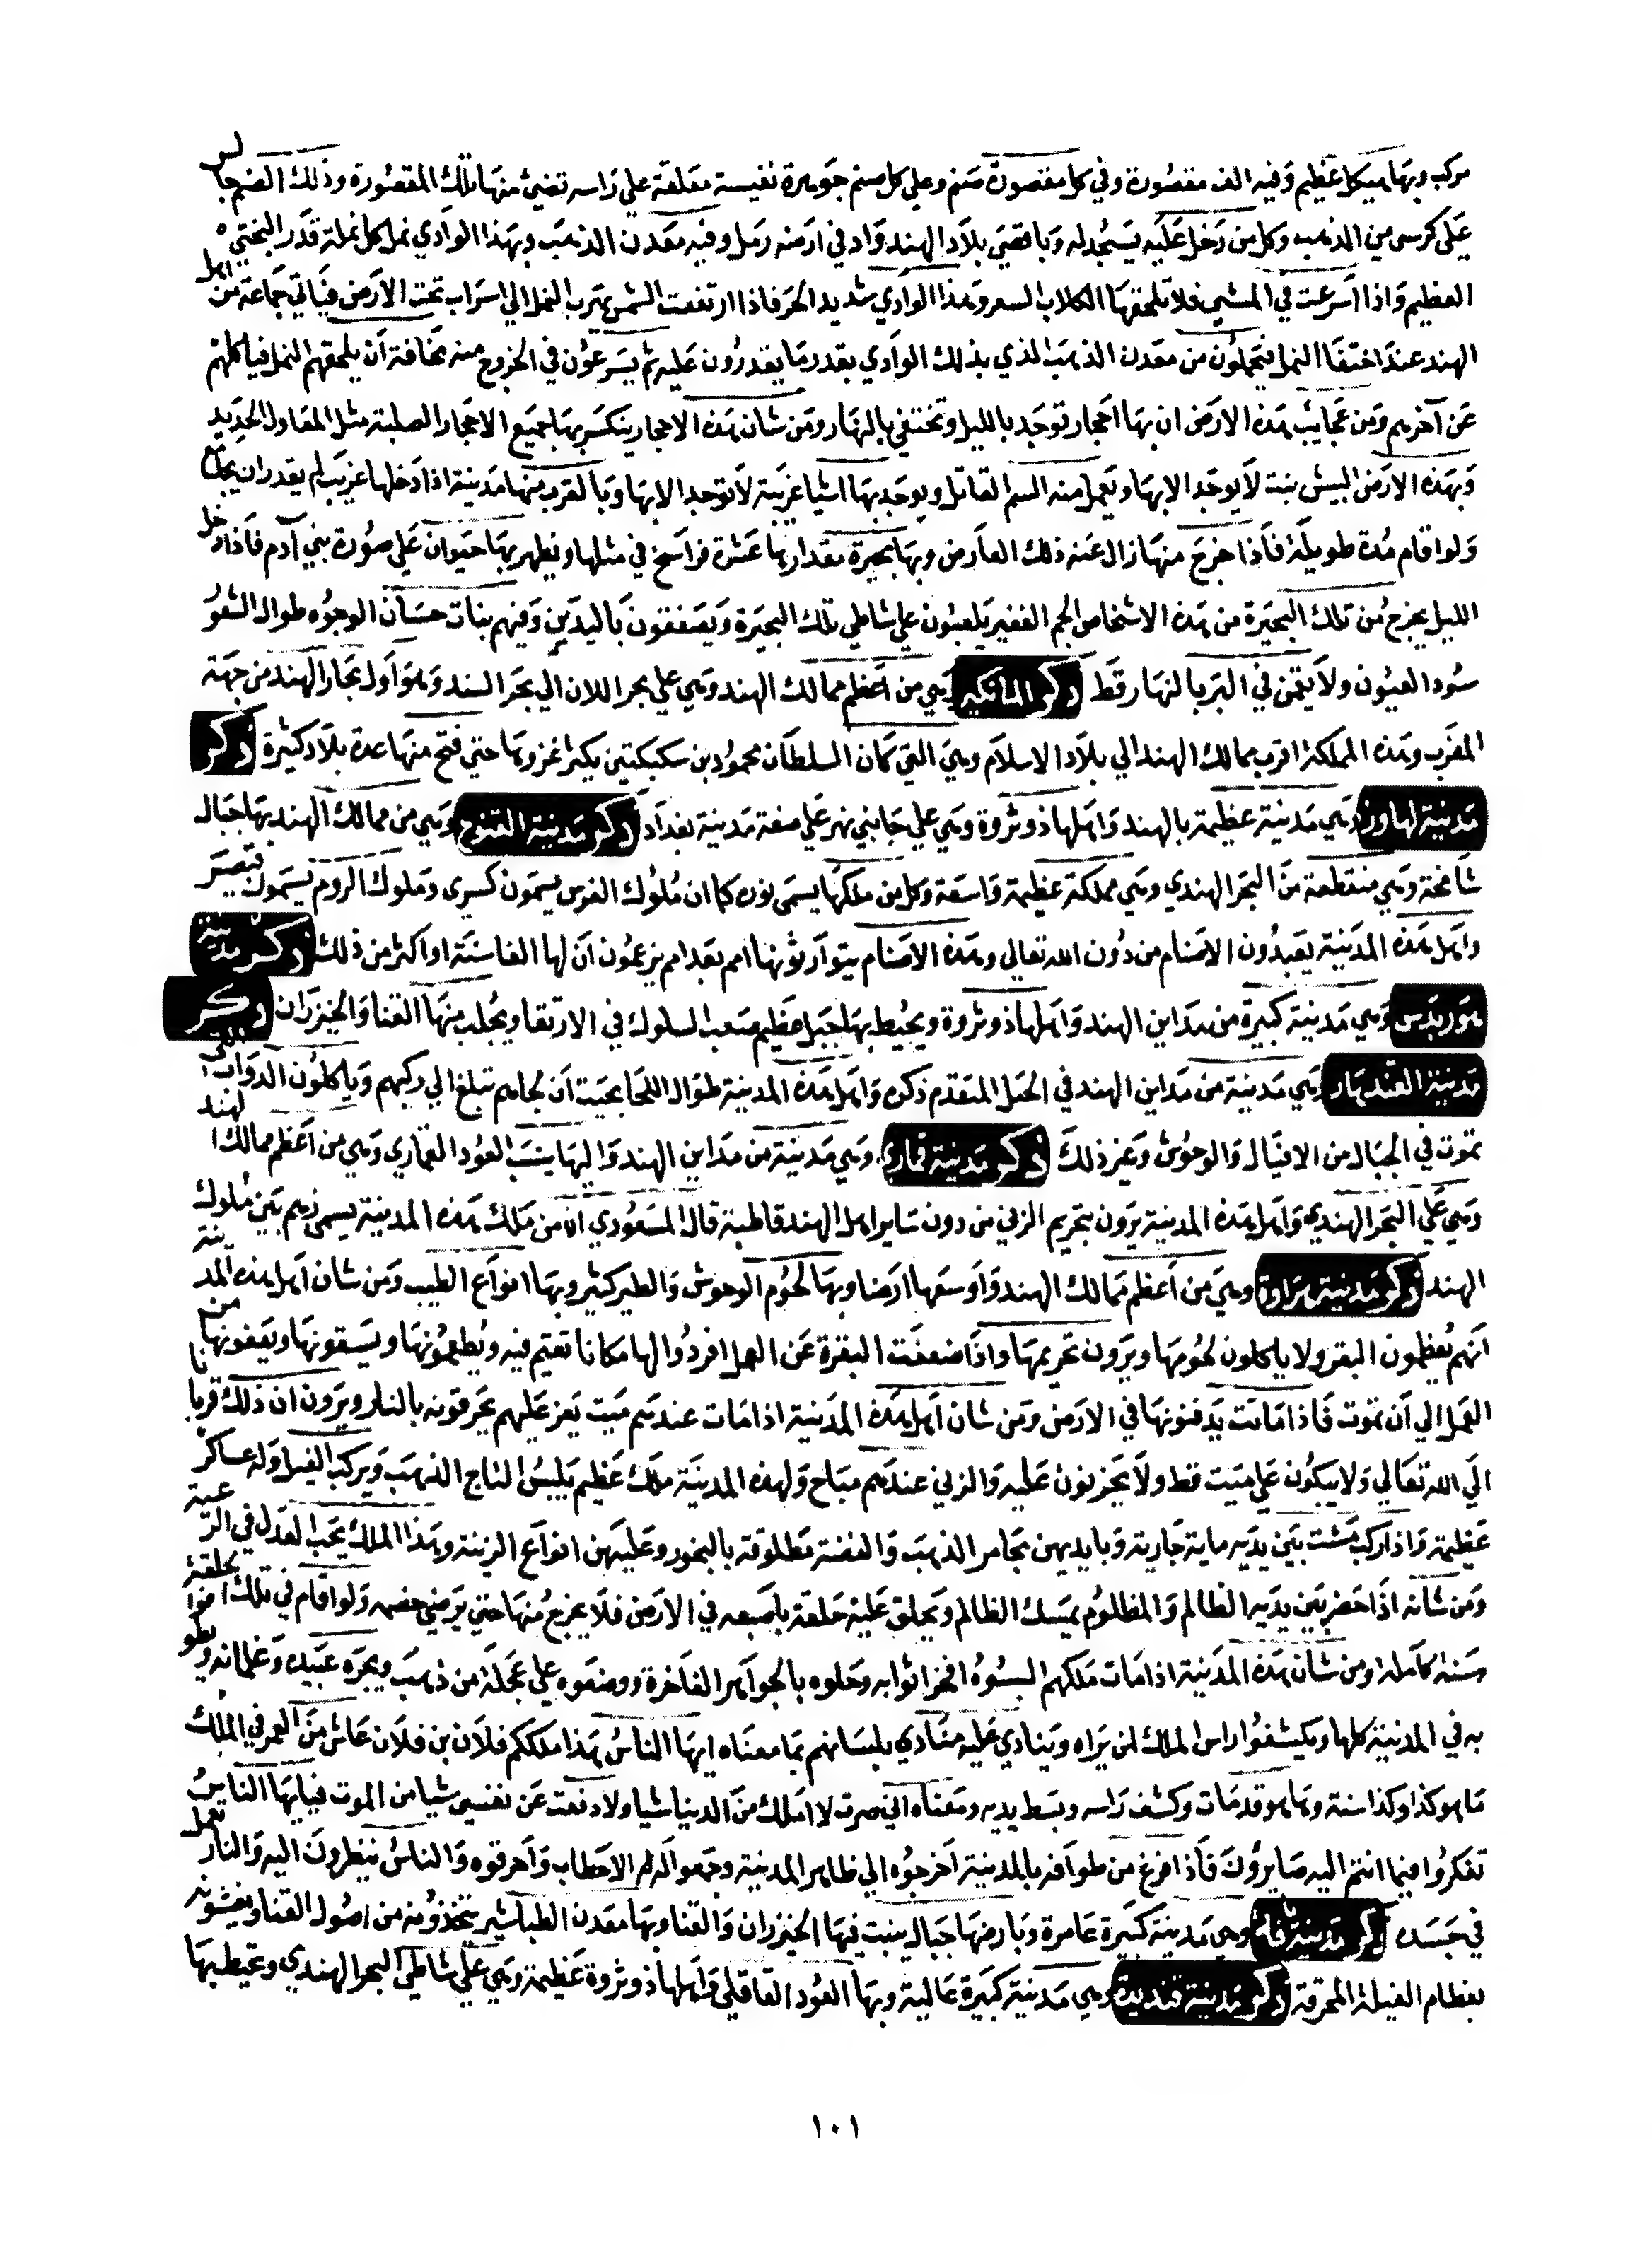 مركب وبها هيكل عظيم وفيه الف مقصورة وفي كل مقصورة صنم وعلي كل صنم جوهرة نفيسة معلقة علي راسه تضئ منها تلك المقصورة وذلك الصنم جالس
علي كرسي من الذهب وكل من دخل عليه يسجد له وباقصي بلاد الهند واد في ارضه رمل وفيه معدن الذهب وبهذا الوادي نمل كل نملة قدر البختي
العظيم واذا اسرعت في المشي فلا تلحقها الكلاب السعر وهذا الوادي شديد الحر فاذا ارتفعت الشمس يهرب النمل الي اسراب تحت الارض فياتي جماعة من اهل
الهند عند اختفا النمل فيحملون من معدن الذهب الذي بذلك الوادي بقدر ما يقدرون عليه ثم يسرعون في الخروج منه مخافة ان يلحقهم النمل فياكلهم
عن آخرهم ومن عجايب هذه الارض ان بها احجار توجد بالليل وتختفي بالنهار ومن شان هذه الاحجار ينكسر بها جميع الاحجار الصلبة مثل المعاول الحديد
وبهذه الارض البيش نبت لا يوجد الا بها ويعمل منه السم القاتل ويوجد بها اشيا غريبة لا توجد الا بها وبالقرب منها مدينة اذا دخلها غريب لم يقدر ان يجامع
ولو اقام مدة طويلة فاذا خرج منها زال عنه ذلك العارض وبها بحيرة مقدارها عشرة فراسخ في مثلها ويظهر بها حيوان علي صورة بني آدم فاذا دخل
الليل يخرج من تلك البحيرة من هذه الاشخاص الجم الغفير يلعبون علي شاطي تلك البحيرة ويصفقون باليدين وفيهم بنات حسان الوجوه طوال الشعور
سود العيون ولا يقمن في البر بالنهار قط ذكر المانكير وهي من اعظم ممالك الهند وهي علي بحر اللان الي بحر السند وهو اول بحار الهند من جهة
المغرب وهذه المملكة اقرب ممالك الهند الي بلاد الاسلام وهي التي كان السلطان محمود بن سكبكتين يكثر غزوها حتي فتح منها عدة بلاد كثيرة ذكر
مدينة لهاوز وهي مدينة عظيمة بالهند واهلها ذو ثروة وهي علي جانبي نهر علي صفة مدينة بغداد ذكر مدينة القنوج وهي من ممالك الهند بها جبال
شامخة وهي منقطعة من البحر الهندي وهي مملكة عظيمة واسعة وكل من ملكها يسمي نوده كما ان ملوك الفرس يسمون كسري وملوك الروم يسمون قيصر
واهل هذه المدينة يعبدون الاصنام من دون الله تعالي وهذه الاصنام يتوارثونها امم بعد امم يزعمون ان لها الف سنة او اكثر من ذلك ذكر مدينة
وهي مدينة كبيرة من مداين الهند واهلها ذو ثروة ويحيط بها جبل عظيم صعب السلوك في الارتقا ويجلب منها القنا والخيزران ذكر
مدينة القندهار وهي مدينة من مداين الهند في الجبل المتقدم ذكره واهل هذه المدينة طوال اللحا بحيث ان لحاهم تبلغ الي ركبهم وياكلون الدواب التي
تموت في الجبال من الافيال والوحوش وغير ذلك ذكر مدينة قمار وهي مدينة من مداين الهند واليها ينسب العود القماري وهي من اعظم ممالك الهند
وهي علي البحر الهندي واهل هذه المدينة يرون بتحريم الزني من دون ساير اهل الهند قاطبة قال المسعودي ان من ملك هذه المدينة يسمي زهم بين ملوك
الهند ذكر مدينة وهي من اعظم ممالك الهند واوسعها ارضا وبها لحوم الوحوش والطير كثير وبها انواع الطيب ومن شان اهل هذه المدينة
انهم يعظمون البقر ولا ياكلون لحومها ويرون تحريمها واذا ضعفت البقرة عن العمل افردوا لها مكانا تقيم فيه ويطعمونها ويسقونها ويعفونها من
العمل الي ان تموت فاذا ماتت يدفنونها في الارض ومن شان اهل هذه المدينة اذا مات عندهم ميت يعز عليهم يحرقونه بالنار ويرون ان ذلك قربانا
الي الله تعالي ولا يبكون علي ميت قط ولا يحزنون عليه والزني عندهم مباح ولهذه المدينة ملك عظيم يلبس التاج الذهب ويركب الفيل وله عساكر
عظيمة واذا ركب مشت بين يديه ماية جارية وبايديهن مجامر الذهب والفضة مطلوقة بالبخور وعليهن انواع الزينة وهذا الملك يحب العدل في الرعية
ومن شانه اذا حضر بين يديه الظالم والمظلوم يمسك الظالم ويحلق عليه حلقة باصبعه في الارض فلا يخرج منها حتي يرضي خصمه ولو اقام في تلك الحلقة
سنة كاملة ومن شان هذه المدينة اذا مات ملكهم البسوه افخر اثوابه وحلوه بالجواهر الفاخرة ووضعوه علي عجلة من ذهب ويجره عبيده وغلمانه ويطوفوا
به في المدينة كلها ويكشفوا راس الملك لمن يراه وينادي عليه منادي بلسانهم بما معناه ايها الناس هذا ملككم فلان بن فلان عاش من العمر في الملك
ما هو كذا وكذا سنة وها هو قد مات وكشف راسه وبسط يديه ومعناه اني صرت لا املك من الدنيا شيا ولا دفعت عن نفسي شيا من الموت فيايها الناس
تفكروا فيما انتم اليه صايرون فاذا فرغ من طوافه بالمدينة اخرجوه الي ظاهر المدينة وجمعوا له الاحطاب واحرقوه والناس ينظرون اليه والنار تعمل
في جسده ذكر مدينة وهي مدينة كبيرة عامرة وبارضها جبال ينبت فيها الخيزران والقنا وبها معدن الطباشير يتخذونه من اصول القنا ويغشونه
بعظام الفيلة المحرقة ذكر مدينة وهي مدينة كبيرة عالية وبها العود القاقلي واهلها ذو ثروة عظيمة وهي علي شاطي البحر الهندي وتحيط بها
١٠١